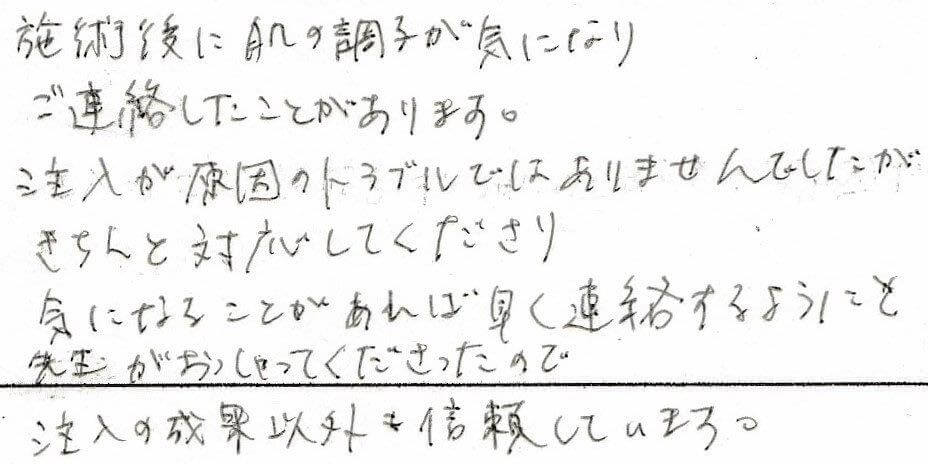 施術後に肌の調子が気になり
ご連絡したことがあります。
注入が原因のトラブルではありませんでしたが
きちんと対応してくださり
気になることがあれば早く連絡するようにと
先生がおっしゃってくださったので
注入の成果以外も信頼しています。